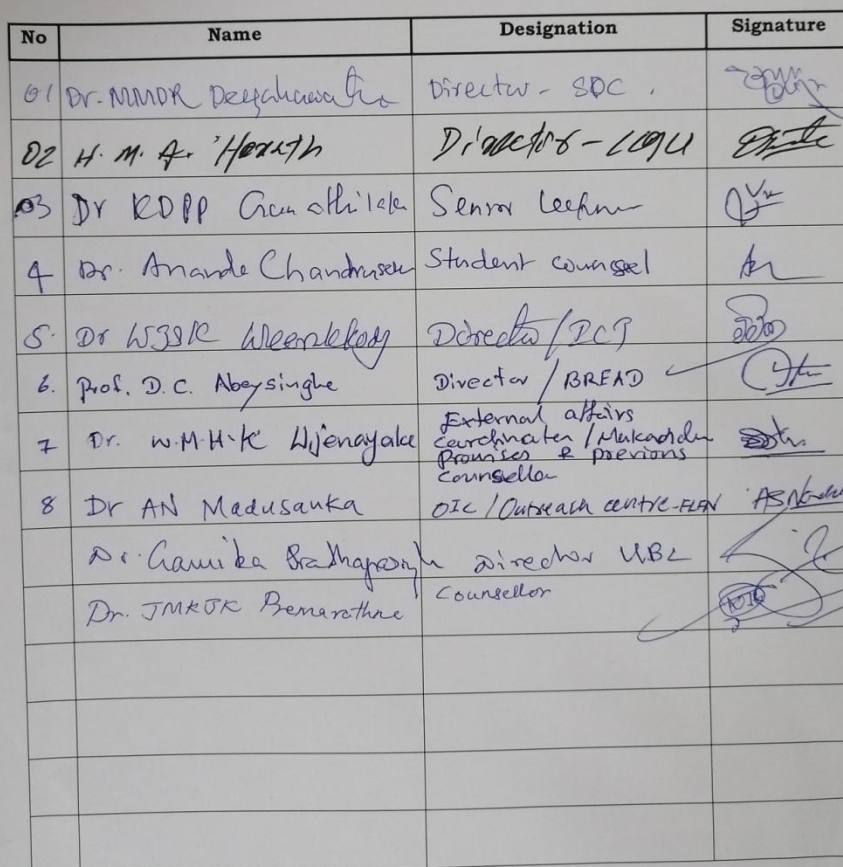 No Name Designation Signature
01 Dr. MMDR Deegahawathu Director - SDC.
02 H. M. A. Herath Director - CGU
03 Dr RDPP Gunathilake Senior Lecturer
4 Dr. Ananda Chandrasekara Student counsel
5. Dr Director / DCT
6. Prof. D. C. Abeysinghe Director / BREAD
7 Dr. W.M.H.K Wijenayake External affairs
coordinator / Makandura
Promises & previous
counsellor
8 Dr AN Madusanka OIC / Outreach centre-FLFN
Dr. Gamika Prathapasingh Director UBL
Dr. JMKJK Premarathne Counsellor